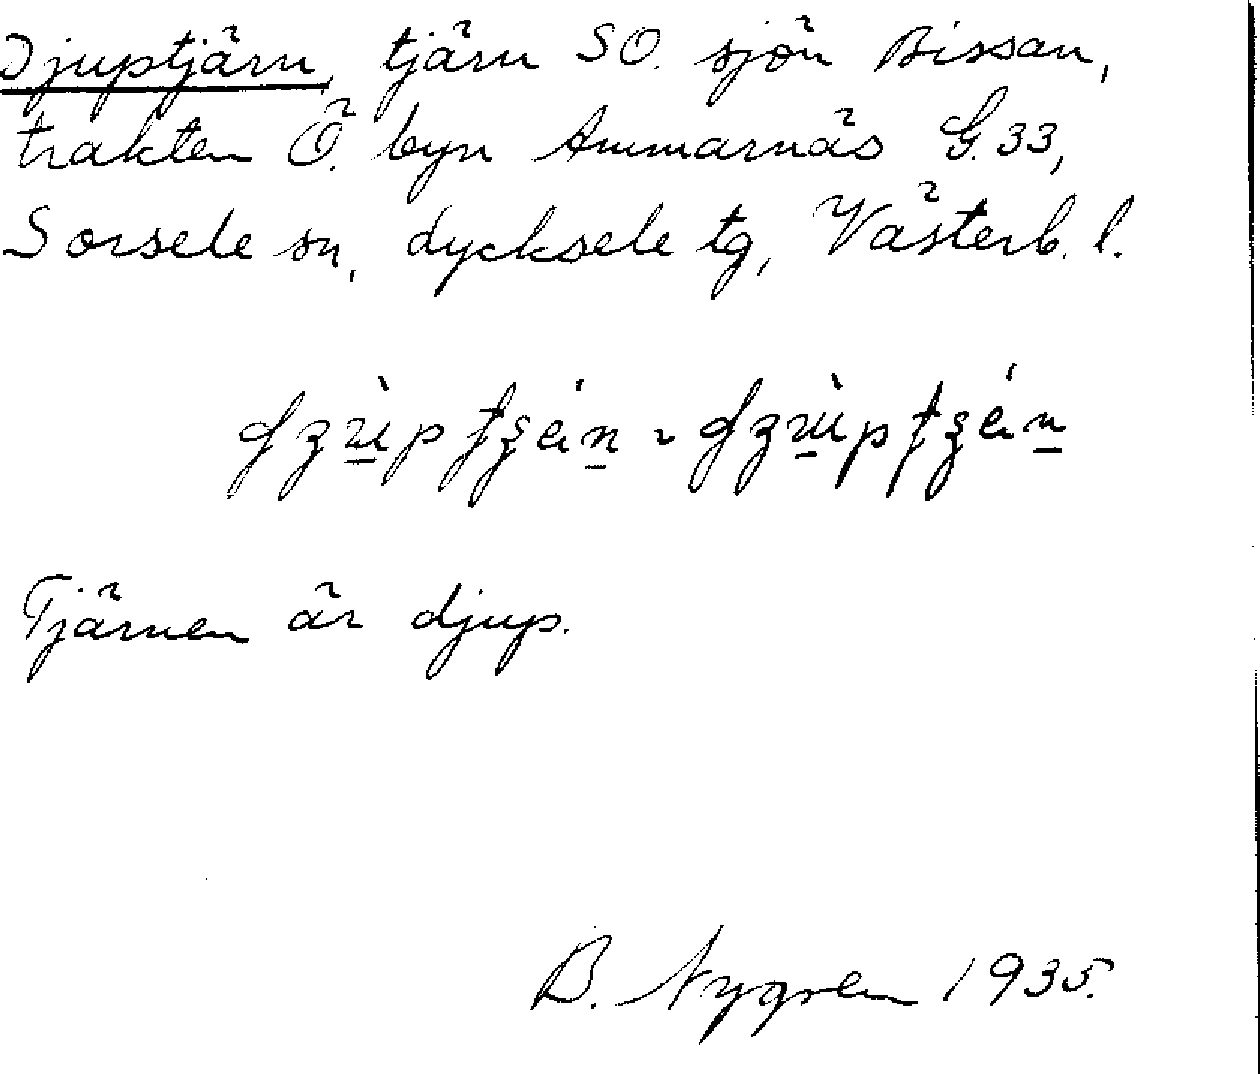 Djuptjärn, tjärn SO. sjön Bissan,
trakten Ö. byn Ammarnäs G.33,
Sorsele sn, dycksele tg, Västerb. l.
Tjärnen är djup.
B. Nygren 1935.